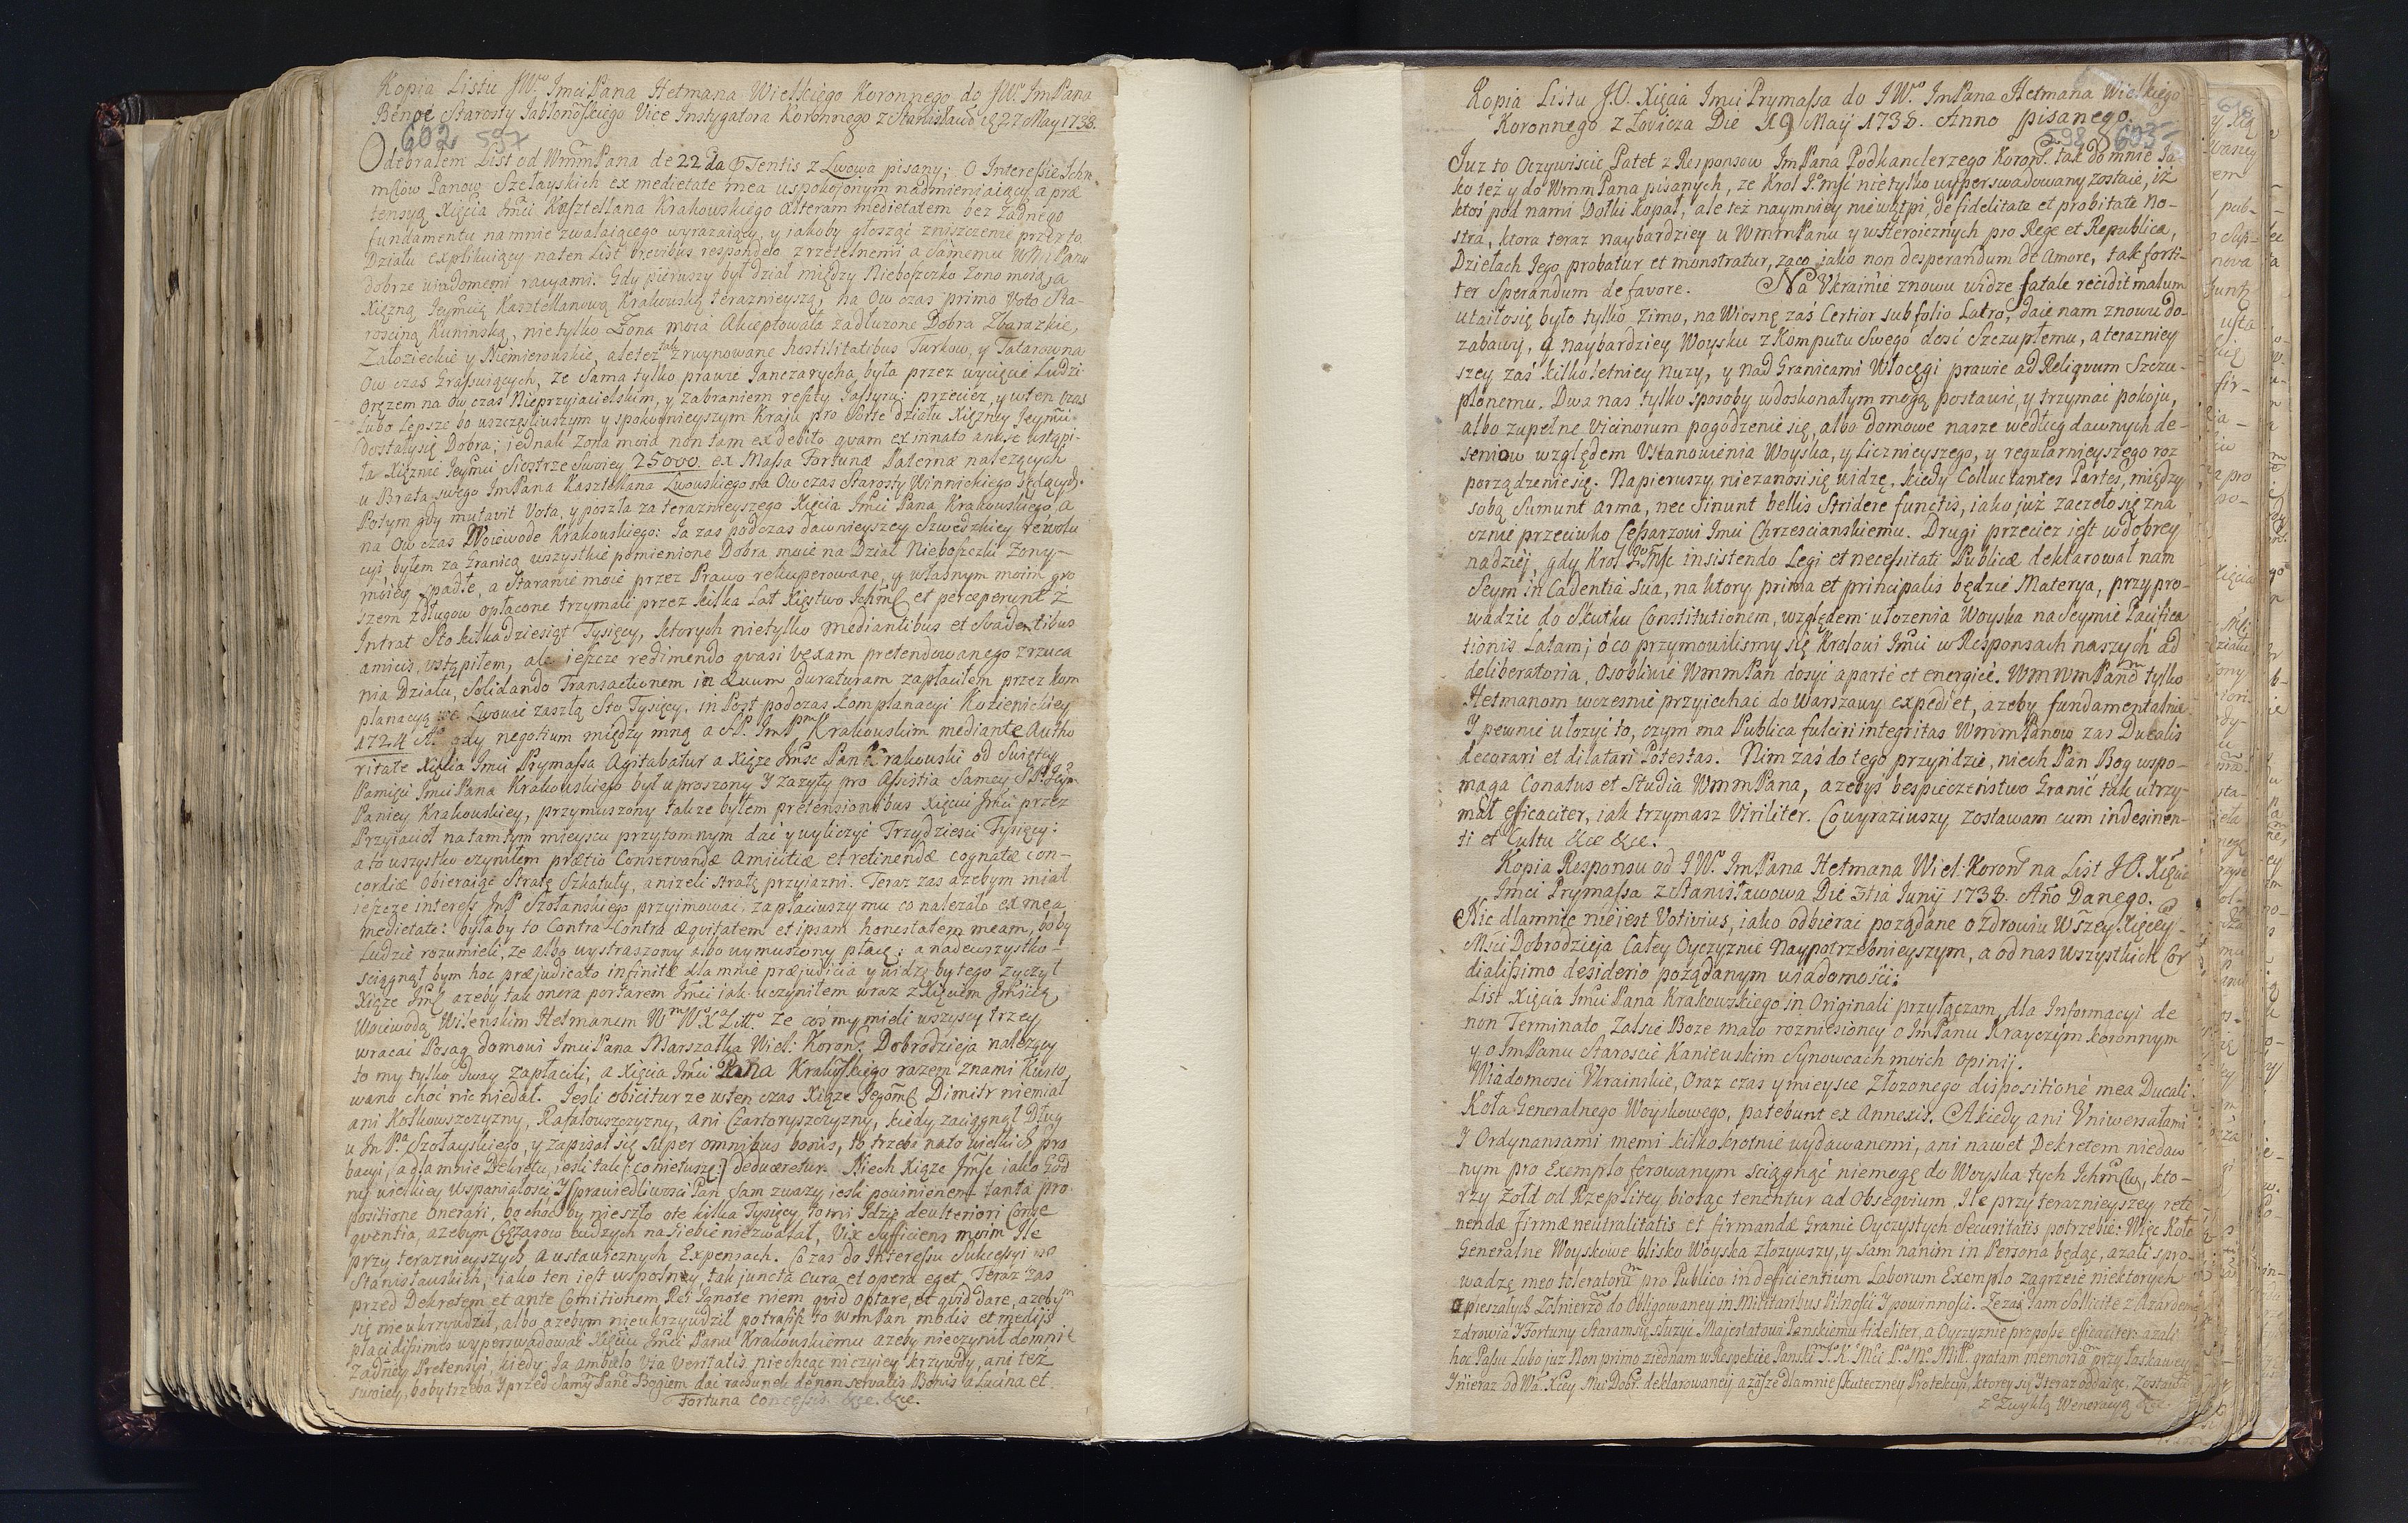 Kopia Listu JWº Imci Pana Hetmana Wielkiego Koronnego do JWº ImPana
Benoe Starosty Jabłonoſkiego Vice Instygatora Koronnego z Stanisławo 27 May 1738.
602 597
Odebrałem List od WmmPana de 22da Tentis z Lwowa pisany; O Interessie Ichm
mściow Panow Szełayskich ex medietate mea uspokojonym nadmieniaiący, a præ
tensyą Xięcia Imći Kasztellana Krakowskiego alteram medietatem bez żadnego
fundamentu na mnie zwalaiącego wyrazaiący, y iakoby głoszące zniszczenie przez to
Działu explikuiący naten List brevibus respondeo zrzetelnemi a Samemu WMPanu
dobrze wiadomemi racyami. Gdy pierwszy był dział między Nieboszczką Zoną moią, a
Xięzną Jeymcią Kasztellanową Krakowską teraznieyszą, na Ow czas primo Voto Sta-
rosciną Kuninską, nie tylko Zona moia Akceptowała zadłuzone Dobra Zbarazkie,
Załozieckie y Niemierowskie, ale też tak zruynowane hostilitatibus Turkow, y Tatarow na
Ow czas Grassuiących, ze sama tylko prawie Janczarycha była przez wycięcie Ludzi
Orężem na ow czas Nieprzyiacielskim, y zabraniem reszty Jassyru: przeciez, y w ten czas
lubo Lepsze bo w szczęśliwszym y spokoynieyszym Kraju pro Sorte działu Xięzney Jeymci
dostały się Dobra; iednak Zona moia non tam ex debito qvam ex innato amore ustąpi-
ła Xięznie Jeymci Siostrze Swoiey 25000 ex Massa Fortunæ Paternæ nalezących
u Brata swego ImPana Kasztellana Lwowskiego na Ow czas Starosty Winnickiego będących.
Potym gdy mutavit Vota, y poszła za teraznieyszego Xięcia Imći Pana Krakowskiego, a
na Ow czas Woiewodę Krakowskiego: Ja zas podczas dawnieyszey Szwedzkiey rewolu
cyi byłem za Granicą wszystkie pomienione Dobra moie na Dział Nieboszczki Zony
moiey spadłe, a Staranie moie przez Prawo rekuperowane, y własnym moim gro
szem z długow opłacone trzymali przez kilka Lat Xięstwo Ichmć et perceperunt z
Intrat Sto kilkadziesiąt Tysięcy, ktorych nietylko mediantibus et Svadentibus
amicis, ustąpiłem, ale ieszcze redimendo qvasi vexam pretendowanego zrzuca
nia Działu, Solidando Transactionem in ævum duraturam zapłaciłem przez kom
planacyą we Lwowie zaszłą Sto Tysięcy, in Post podczas komplanacyi Kozienickiey
1724 Aº gdy negotium między mną a SP. ImPm Krakowskim mediante Autho
ritate Xięcia Imci Prymassa Agitabatur a Xiąze Jmśc Pan Krakowski od Swiętey
Pamięci Imci Pana Krakowskiego był uproszony y zazyty pro Assistia Samey
Paniey Krakowskiey, przymuszony takze byłem pretensionibus Xięciu Jmći przez
Przyiacioł na tamtym mieyscu przytomnym dać y wyliczyć Trzydziesci Tysięcy:
a to wszystko czyniłem prætio Conservandæ Amicitiæ et retinendæ cognatæ con-
cordiæ Obieraiąc Stratę Szkatuły, anizeli Stratę przyiazni. Teraz zas azebym miał
ieszcze interess JmP Szołanskiego przyimować, zapłaciwszy mu co nalezało ex mea
medietate: byłaby to Contra Contra æqvitatem et ipsam honestatem meam, boby
Ludzie rozumieli, ze albo wystraszony albo wymuszony płacę: a nadewszystko
sciągnął bym hoc præjudicato infinita dla mnie præjudicia y widzę by tego zyczył
Xiąze Jmć azeby tak onera portarem Jmći iak uczyniłem wraz z Xięciem Jmscią
Woiewodą Wilenskim Hetmanem Wm WºXªLittº ze cośmy mieli wszyscy trzey
wracać Posag domowi Imci Pana Marszałka Wiel: Koronº Dobrodzieja nalezący
to my tylko dway zapłacili, a Xięcia Jmći Pana Krakoskiego razem z nami Kwito
wano choć nic niedał. Jesli obicitur ze w ten czas Xiąze Jegomć Dimitr niemiał
ani Kołkowszczyzny, Rafałowszczyzny, ani Czartoryszczyzny, kiedy zaciągnął Dług
u JmPª Szołayskiego, y zapisał się super omnibus bonis, to trzeba na to wielkich pro
bacyi, a dla mnie Dekretu, iesli tak [: co nietuszę:] deduceretur. Niech Xiąze Jmśc iako God
ny wielkiey wspaniałości, y sprawiedliwosci Pan sam zwazy, iesli powinienem tanta pro
positione Onerari, bo choć by nieszło o te kilka Tysięcy, to mi Idzie de ulteriori Conse
qventia, azebym Cięzarow cudzych na siebie niezwalał, Vix sufficiens moim Ile
przy teraznieyszych a ustawicznych Expensach. Co zas do Interessu Sukcessyi po
Stanisławskich, iako ten iest wspolny, tak juncta cura et opera eget. Teraz zas
przed Dekretem et ante Comitionem Rei Ignotæ niem qvid optare, et qvid dare, azebym
się nieukrzywdził, albo azebym nieukrzywdził potrafisz to WmPan modis et medijs
placidissimis wyperswadować Xięciu Jmći Panu Krakowskiemu azeby nieczynił do mnie
zadney Pretensyi, kiedy Ja ambulo Via Veritatis niechcąc niczyiey krzywdy, ani też
swoiey, boby trzeba y przed Samym Panem Bogiem dać rachunek de non servatis Bonis a Lacina et
Fortuna Concessis &c. &c.
Kopia Listu J.O. Xięcia Imci Prymassa do JWº ImPana Hetmana Wielkiego
Koronnego z Łowicza Die 19 Maij 1738. Anno pisanego.
598 603
Juz to Oczywiscie Patet z Responsow ImPana Podkanclerzego Koronº tak do mnie Ja
ko też y do WmmPana pisanych, ze Krol Jºmść nie tylko wyperswadowany zostaie, iż
ktoś pod nami Dołki kopał, ale też naymniey niewątpi, de fidelitate et probitate no-
stra, ktora teraz naybardziey u WmmPanu y w Heroicznych pro Rege et Republica,
Dziełach Jego probatur et monstratur, zaco jako non desperandum de Amore, tak forti-
ter Sperandum de favore. Na Ukrainie znowu widze fatale recidit malum
utaiło się było tylko Zimo, na Wiosnę zaś Certior sub folio Latro, daie nam znowu do-
zabawy, a naybardziey Woysku z Komputu Swego dość Szczupłemu, a terazniey
szey zaś kilkoletniey nuzy, y nad Granicami Włocęgi prawie ad Reliqvum Szczu-
plonemu. Dwa nas tylko Sposoby w doskonałym mogą postawić, y trzymać pokoju,
albo zupełne Vicinorum pogodzenie się, albo domowe nasze według dawnych de-
seniow względem Ustanowienia Woyska, y Licznieyszego, y regularnieyszego roz
porządzenie się. Na pierwszy niezanosi się widzę, kiedy Colluctantes Partes, między
sobą Sumunt arma, nec Sinunt bellis Stridere functis, iako już zaczeło się zna
cznie przeciwko Cesarzowi Imci Chrzescianskiemu. Drugi przeciez iest w dobrey
nadzieij, gdy Krol Jºmśc insistendo Legi et necessitati Publicæ deklarował nam
Seym in Cadentia Sua, na ktory prima et principalis będzie Materya, przypro-
wadzić do Skutku Constitutionem, względem ułozenia Woyska na Seymie Pacifica
tionis Latam; o co przymowilismy się Krolowi Imci w Responsach naszych ad
deliberatoria, Osobliwie WmmPan dosyć aparte et energice. WmWmPanom tylko
Hetmanom wczesnie przyiechać do Warszawy expediet, azeby fundamentalnie
Y pewnie ułozyć to, czym ma Publica fulciri integritas WmmPanow zas Ducalis
decorari et dilatari Potestas. Nim zaś do tego przyidzie, niech Pan Bog wspo-
maga Conatus et Studia WmmPana, azebyś bespieczeństwo Granic tak utrzy-
mał efficaciter, iak trzymasz Viriliter. Co wyraziwszy zostawam cum indesinen-
ti et Cultu &c &c.
Kopia Responsu od JWº ImPana Hetmana Wiel. Koronº na List J.O. Xięcia
Imci Prymassa z Stanisławowa Die 3tia Junij 1738. Año Danego.
Nic dla mnie nie iest Votivius, iako odbierać poządane o zdrowiu Wszey Xięcey
Mści Dobrodzieja Całey Oyczyznie Naypotrzebnieyszym, a od nas wszystkich Cor
dialissimo desiderio poządanym wiadomości.
List Xięcia Imci Pana Krakowskiego in Originali przyłączam, dla Informacyi de
non Terminato, Zalsie Boze mało rozniesioney o ImPanu Krayczym koronnym
y o ImPanu Staroscie Kaniewskim Synowcach moich opinij.
Wiadomosci Ukrainskie, Oraz czas y mieysce Złozonego dispositione mea Ducali
Koła Generalnego Woyskowego, patebunt ex Annexis. A kiedy ani Uniwersałami
Y Ordynansami memi kilkokrotnie wydawanemi, ani nawet Dekretem niedaw
nym pro Exemplo ferowanym sciągnąć niemogę do Woyska tych Ichmćw, kto-
rzy Zołd od Rzeplitey biorąc tenentur ad Obseqvium, Ile przy teraznieyszey reti
nendæ firmæ neutralitatis et firmandæ Granic Oyczystych Securitatis potrzebie. Więc Koło
Generalne Woyskowe blisko Woyska złozywszy, y Sam na nim in Persona będąc, azali spro-
wadzę meo toleratorum pro Publico indeficientium Laborum Exemplo zagrzeie niektorych
opieszałych Zołnierzow do Obligowaney in Militaribus Pilności Y powinności. Ze zaś sam Sollicite z Azardem
zdrowia Y Fortuny Staram się słuzyć Majestatowi Panskiemu fideliter, a Oyczyznie pro posse efficaciter azali
hoc Passu Lubo już Non primo ziednam w Respekcie Panskim J.K.Mci P.Mº Miłº gratam memoriam przy łaskawey
Y nieraz od Wa Xcey Mci Dobr. deklarowaney a zasze dla mnie skuteczney Protekcyi, ktorey się y teraz oddaiąc, Zostaię
z Zwykłą Weneracyą &c.